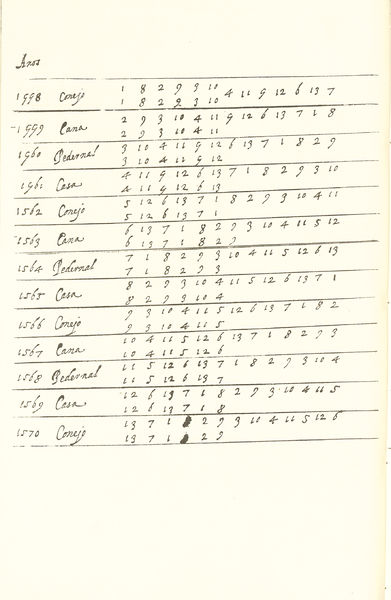 Anos
1998 Conejo 1 8 2 9 3 10 4 11 9 12 6 13 7
1 8 2 9 3 10
1999 Cana 2 9 3 10 4 11 9 12 6 13 7 1 8
2 9 3 10 4 11
1960 Pedernal 3 10 4 11 9 12 6 13 7 1 8 2 9
3 10 4 11 9 12
1961 Casa 4 11 9 12 6 13 7 1 8 2 9 3 10
4 11 9 12 6 13
1562 Conejo 5 12 6 13 7 1 8 2 9 3 10 4 11
5 12 6 13 7 1
1563 Cana 6 13 7 1 8 2 9 3 10 4 11 5 12
6 13 7 1 8 2 9
1564 Pedernal 7 1 8 2 9 3 10 4 11 5 12 6 13
7 1 8 2 9 3
1565 Casa 8 2 9 3 10 4 11 5 12 6 13 7 1
8 2 9 3 10 4
1566 Conejo 9 3 10 4 11 5 12 6 13 7 1 8 2
9 3 10 4 11 5
1567 Cana 10 4 11 5 12 6 13 7 1 8 2 9 3
10 4 11 5 12 6
1568 Pedernal 11 5 12 6 13 7 1 8 2 9 3 10 4
11 5 12 6 13 7
1569 Casa 12 6 13 7 1 8 2 9 3 10 4 11 5
12 6 13 7 1 8
1570 Conejo 13 7 1 2 9 3 10 4 11 5 12 6
13 7 1 2 9